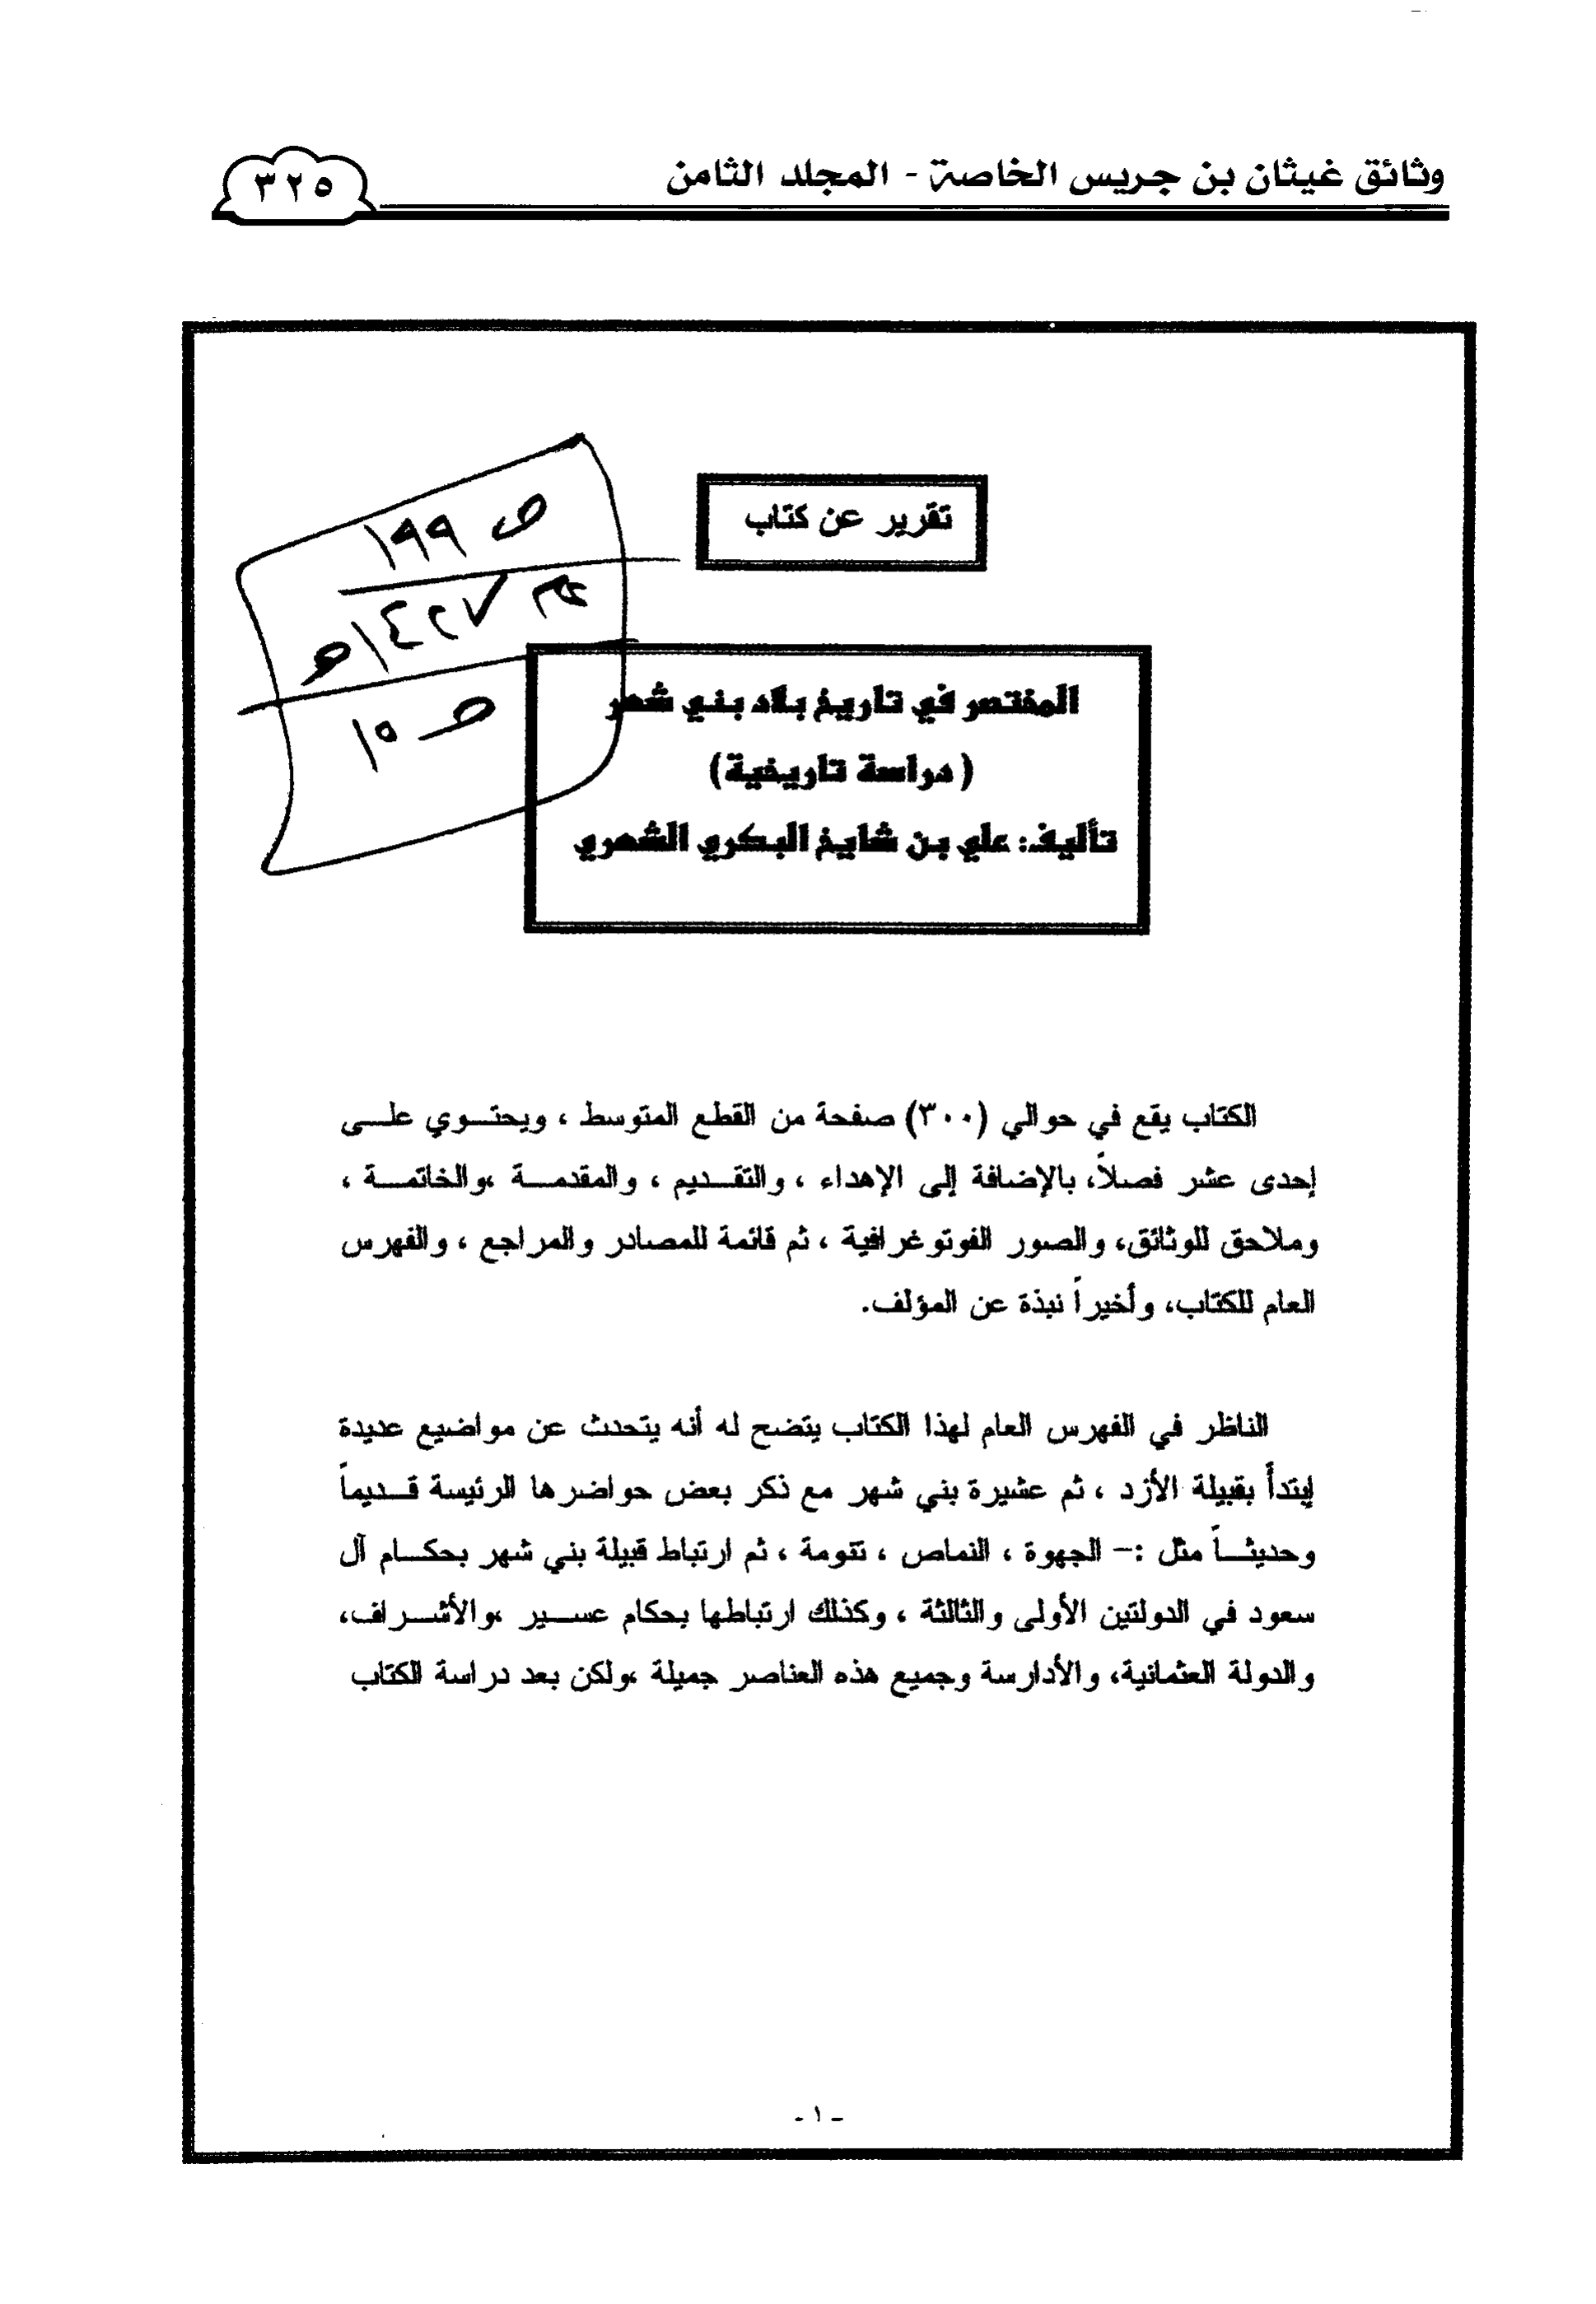 وثائق غيثان بن جريس الخاصة - المجلد الثامن
٣٢٥
تقرير عن كتاب
ص ١٩٩
عام ١٤٢٧هـ
ص ١٥
المختصر في تاريخ بلاد بني شهر
(دراسة تاريخية)
تأليف: علي بن شايخ البكري الشهري
الكتاب يقع في حوالي (٣٠٠) صفحة من القطع المتوسط ، ويحتوي على
إحدى عشر فصلاً، بالإضافة إلى الإهداء ، والتقديم ، والمقدمة ،والخاتمة ،
وملاحق للوثائق، والصور الفوتوغرافية ، ثم قائمة للمصادر والمراجع ، والفهرس
العام للكتاب، وأخيراً نبذة عن المؤلف.
الناظر في الفهرس العام لهذا الكتاب يتضح له أنه يتحدث عن مواضيع عديدة
إبتدأ بقبيلة الأزد ، ثم عشيرة بني شهر مع ذكر بعض حواضرها الرئيسة قديماً
وحديثاً مثل :– الجهوة ، النماص ، تنومة ، ثم ارتباط قبيلة بني شهر بحكام آل
سعود في الدولتين الأولى والثالثة ، وكذلك ارتباطها بحكام عسير ،والأشراف،
والدولة العثمانية، والأدارسة وجميع هذه العناصر جميلة ،ولكن بعد دراسة الكتاب
- ١ -